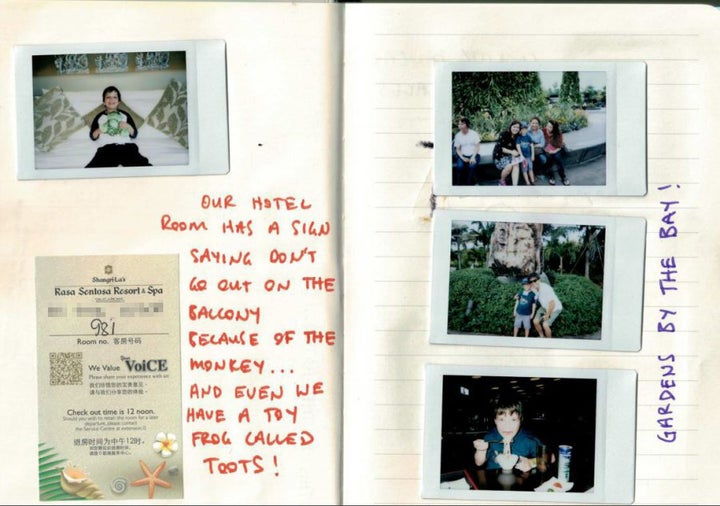 OUR HOTEL
ROOM HAS A SIGN
SAYING DON'T
GO OUT ON THE
BALCONY
BECAUSE OF THE
MONKEY...
AND EVEN WE
HAVE A TOY
FROG CALLED
TOOTS!
Shangri-La's
Rasa Sentosa Resort & Spa
981
Room no. 客房号码
We Value Your VoiCE
Please share your experience with us:
我们珍惜您的宝贵意见,
请与我们分享您的体验。
Check out time is 12 noon.
Should you wish to retain the room for a later
departure, please contact
the Service Centre at extension 0
退房时间为中午12时。
GARDENS BY THE BAY!